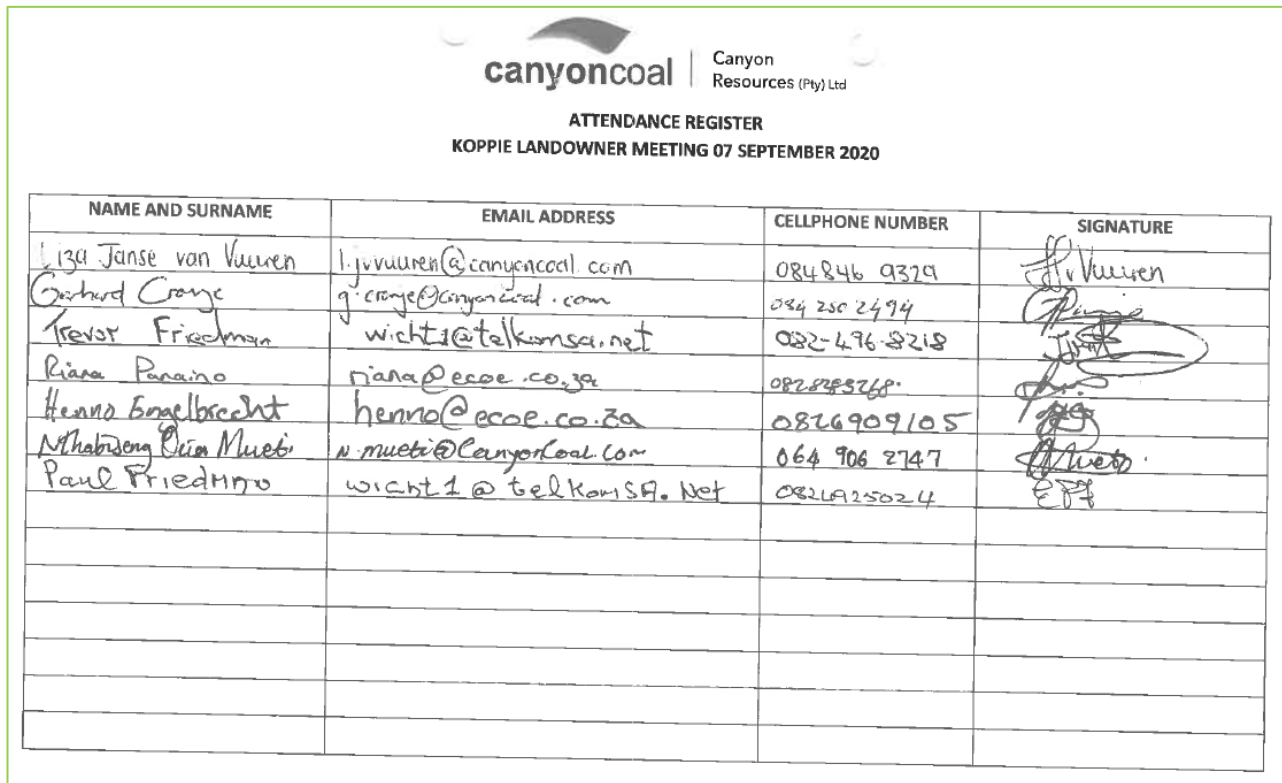 canyoncoal | Canyon
Resources (Pty) Ltd
ATTENDANCE REGISTER
KOPPIE LANDOWNER MEETING 07 SEPTEMBER 2020
NAME AND SURNAME EMAIL ADDRESS CELLPHONE NUMBER SIGNATURE
Liza Janse van Vuuren l.jvvuuren@canyoncoal.com 084 846 9329 Vuuren
Gerhard Cronje g.cronje@canyoncoal.com 084 250 2494
Trevor Friedman wicht1@telkomsa.net 082-496-8218
Riana Panaino riana@ecoe.co.za 0828283268.
Henno Engelbrecht henno@ecoe.co.za 0826909105
Mueti n.mueti@CanyonCoal.Com 064 906 2747 Mueti
Paul wicht1@telkomSA.Net 0826925024 EPF